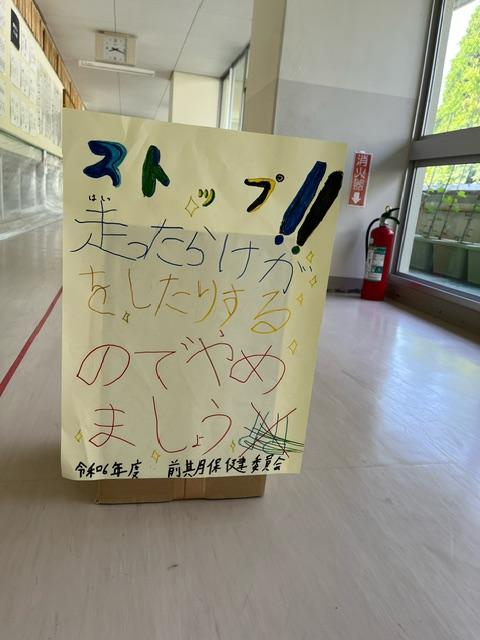 ストップ!!
はし
走ったらけが
をしたりする
のでやめ
ましょう
令和6年度 前其月保健委員会
消火器